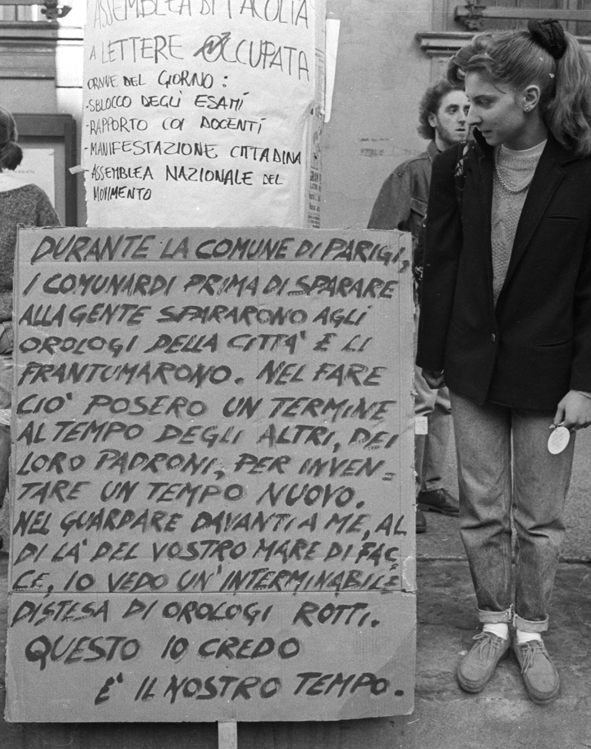 ASSEMBLEA DI FACOLTÀ
A LETTERE OCCUPATA
ORDINE DEL GIORNO:
-SBLOCCO DEGLI ESAMI
-RAPPORTO COI DOCENTI
-MANIFESTAZIONE CITTADINA
-ASSEMBLEA NAZIONALE DEL
MOVIMENTO
DURANTE LA COMUNE DI PARIGI,
I COMUNARDI PRIMA DI SPARARE
ALLA GENTE SPARARONO AGLI
OROLOGI DELLA CITTA' E LI
FRANTUMARONO. NEL FARE
CIO' POSERO UN TERMINE
AL TEMPO DEGLI ALTRI, DEI
LORO PADRONI, PER INVEN=
TARE UN TEMPO NUOVO.
NEL GUARDARE DAVANTI A ME, AL
DI LA' DEL VOSTRO MARE DI FAC
CE, IO VEDO UN'INTERMINABILE
DISTESA DI OROLOGI ROTTI.
QUESTO IO CREDO
E' IL NOSTRO TEMPO.